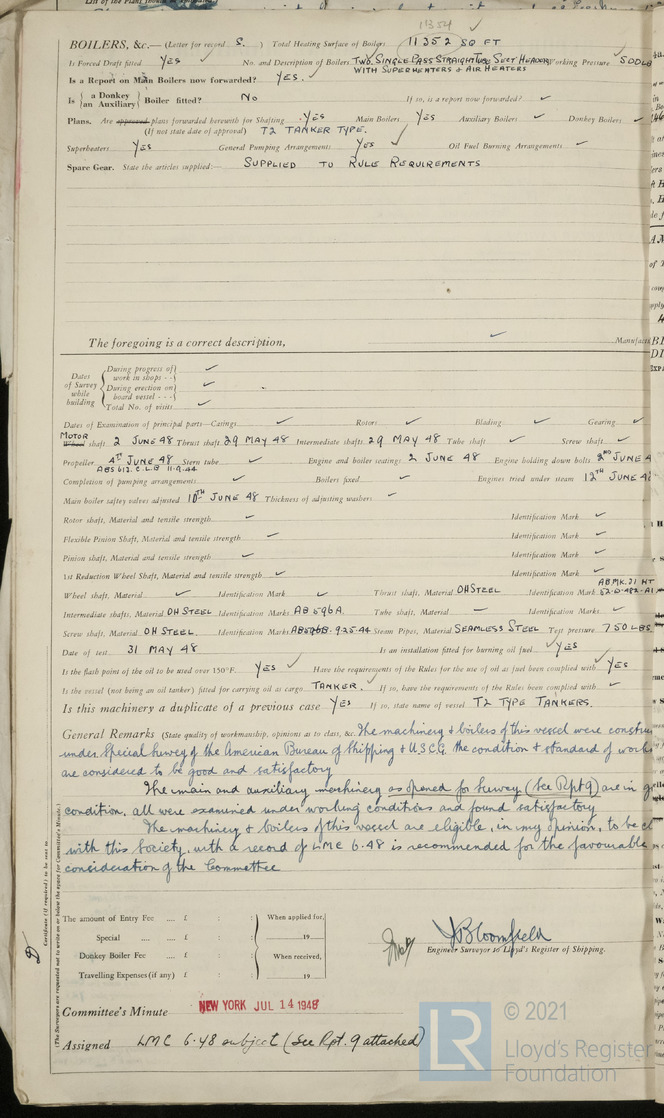 11354
BOILERS, &c.— (Letter for record S. ) Total Heating Surface of Boilers 11352 SQ FT
Is Forced Draft fitted YES No. and Description of Boilers TWO, SINGLE PASS STRAIGHT TUBE SECT HEADER Working Pressure 500LB
WITH SUPERHEATERS & AIR HEATERS
Is a Report on Main Boilers now forwarded? YES.
Is { a Donkey / an Auxiliary } Boiler fitted? NO If so, is a report now forwarded? ✓
Plans. Are approved plans forwarded herewith for Shafting YES Main Boilers YES Auxiliary Boilers ✓ Donkey Boilers ✓
(If not state date of approval) T2 TANKER TYPE.
Superheaters YES General Pumping Arrangements YES ✓ Oil Fuel Burning Arrangements ✓
Spare Gear. State the articles supplied:— SUPPLIED TO RULE REQUIREMENTS
The foregoing is a correct description, ✓ Manufact
Dates of Survey while building
During progress of work in shops - - ✓
During erection on board vessel - - - ✓
Total No. of visits ✓
Dates of Examination of principal parts—Casings ✓ Rotors ✓ Blading ✓ Gearing ✓
MOTOR
Wheel shaft 2 JUNE 48 Thrust shaft 29 MAY 48 Intermediate shafts 29 MAY 48 Tube shaft ✓ Screw shaft ✓
Propeller 4TH JUNE 48 Stern tube ✓ Engine and boiler seatings 2 JUNE 48 Engine holding down bolts 2ND JUNE 4
ABS 612. C.L.B 11-9-44
Completion of pumping arrangements ✓ Boilers fixed ✓ Engines tried under steam 12TH JUNE 48
Main boiler saftey valves adjusted 10TH JUNE 48 Thickness of adjusting washers ✓
Rotor shaft, Material and tensile strength ✓ Identification Mark ✓
Flexible Pinion Shaft, Material and tensile strength ✓ Identification Mark ✓
Pinion shaft, Material and tensile strength ✓ Identification Mark ✓
1st Reduction Wheel Shaft, Material and tensile strength ✓ Identification Mark ✓
AB MK. 21 HT
Wheel shaft, Material ✓ Identification Mark ✓ Thrust shaft, Material OH STEEL Identification Mark 52-D-482-A1
Intermediate shafts, Material OH STEEL Identification Marks AB 596A. Tube shaft, Material — Identification Marks ✓
Screw shaft, Material OH STEEL Identification Marks AB596B. 9.25.44 Steam Pipes, Material SEAMLESS STEEL Test pressure 750 LBS.
Date of test 31 MAY 48 Is an installation fitted for burning oil fuel ✓ YES
Is the flash point of the oil to be used over 150°F. YES ✓ Have the requirements of the Rules for the use of oil as fuel been complied with ✓ YES
Is the vessel (not being an oil tanker) fitted for carrying oil as cargo TANKER. If so, have the requirements of the Rules been complied with ✓
Is this machinery a duplicate of a previous case YES If so, state name of vessel T2 TYPE TANKERS.
General Remarks (State quality of workmanship, opinions as to class, &c. The machinery & boilers of this vessel were constru
under Special Survey of the American Bureau of Shipping & U.S.C.G. the condition & standard of work
are considered to be good and satisfactory
The main and auxiliary machinery as opened for survey (See Rpt 9) are in g
condition, all were examined under working conditions and found satisfactory
The machinery & boilers of this vessel are eligible, in my opinion, to be cl
with this Society, with a record of LMC 6.48 is recommended for the favourable
consideration of the Committee
Certificate (if required) to be sent to
(The Surveyors are requested not to write on or below the space for Committee's Minute.)
The amount of Entry Fee .... £ : : When applied for,
Special .... .... £ : : 19
Donkey Boiler Fee .... £ : : When received,
Travelling Expenses (if any) £ : : 19
J Bloomfield
Engineer Surveyor to Lloyd's Register of Shipping.
Committee's Minute NEW YORK JUL 14 1948
Assigned LMC 6.48 subject (See Rpt. 9 attached)
LR
© 2021
Lloyd's Register
Foundation